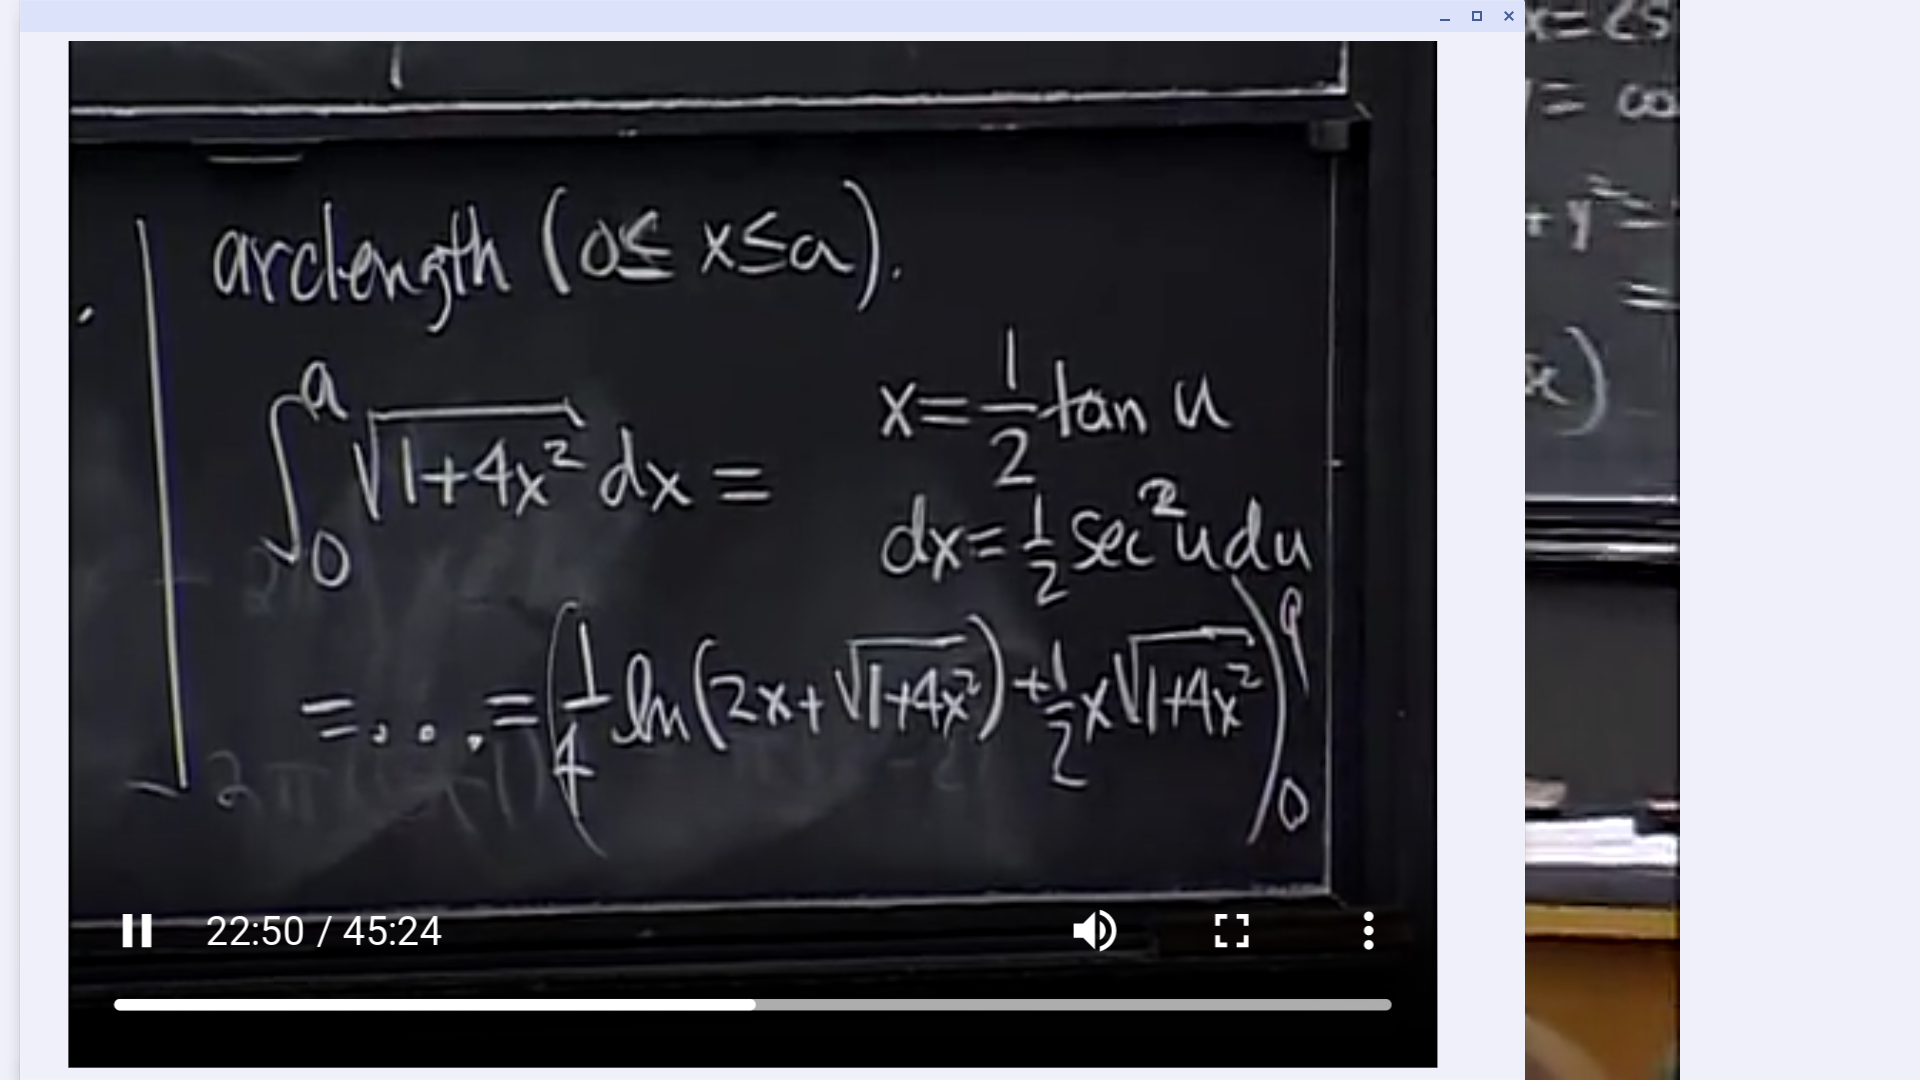 arclength (0≤ x≤a).
∫₀ᵃ √(1+4x²) dx =
x= 1/2 tan u
dx= 1/2 sec² u du
=...= (1/4 ln(2x+√(1+4x²)) + 1/2 x√(1+4x²))₀ᵃ
22:50 / 45:24
+ y² =
=